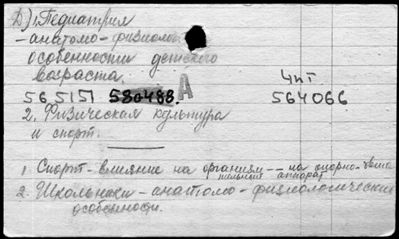 Д) 1. Педиатрия
- анатомо - физиоло
особенности детского
возраста.
565151 580488 А
Чит
564066
2. Физическая культура
и спорт.
1. Спорт - влияние на организм - - на опорно-двига
тельный аппарат
2. Школьники - анатомо - физиологические
особенности.